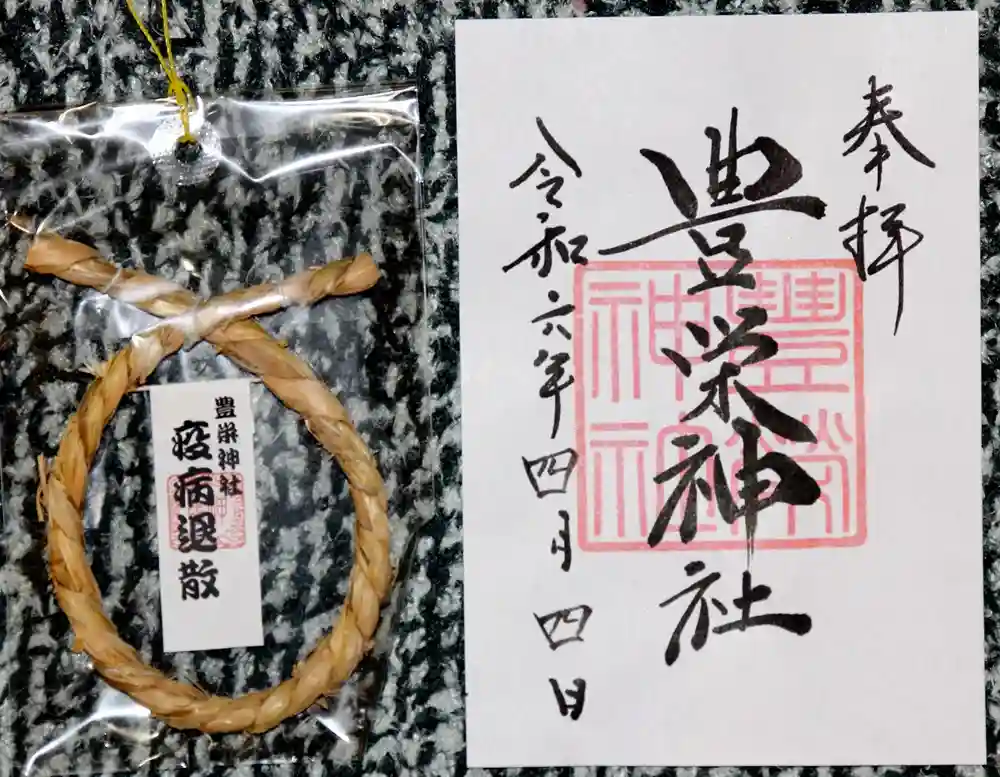 奉拝
豊栄神社
令和六年四月四日
豊栄神社
疫病退散